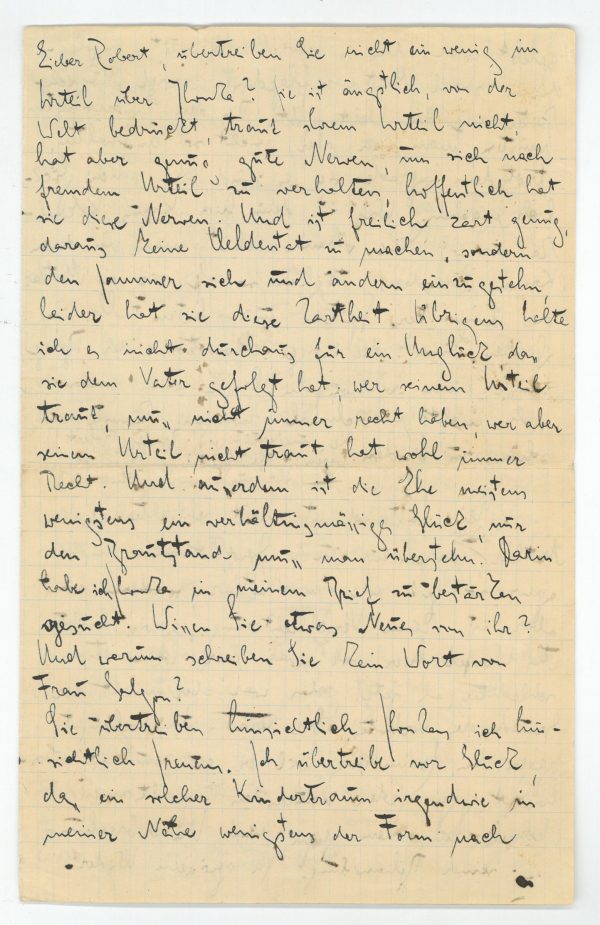 Lieber Robert, übertreiben Sie nicht ein wenig im
Urteil über Ilonka? Sie ist ängstlich, von der
Welt bedrückt, traut ihrem Urteil nicht,
hat aber genug gute Nerven, um sich nach
fremdem Urteil zu verhalten, hoffentlich hat
sie diese Nerven. Und ist freilich zart genug,
daraus keine Heldentat zu machen, sondern
den Jammer sich und andern einzugestehn,
leider hat sie diese Zartheit. Übrigens halte
ich es nicht durchaus für ein Unglück das
sie dem Vater gefolgt hat; wer seinem Urteil
traut, muss nicht immer recht haben, wer aber
seinem Urteil nicht traut, hat wohl immer
Recht. Und ausserdem ist die Ehe meistens
wenigstens ein verhältnismässiges Glück, nur
den Brautstand muss man überstehn. Darin
habe ich Ilonka in meinem Brief zu bestärken
gesucht. Wissen Sie etwas Neues von ihr?
Und warum schreiben Sie kein Wort von
Frau Galgon?
Sie übertreiben hinsichtlich Ilonkas ich hin-
sichtlich Irenens. Ich übertreibe vor Glück,
das ein solcher Kindertraum irgendwie in
meiner Nähe wenigstens der Form nach